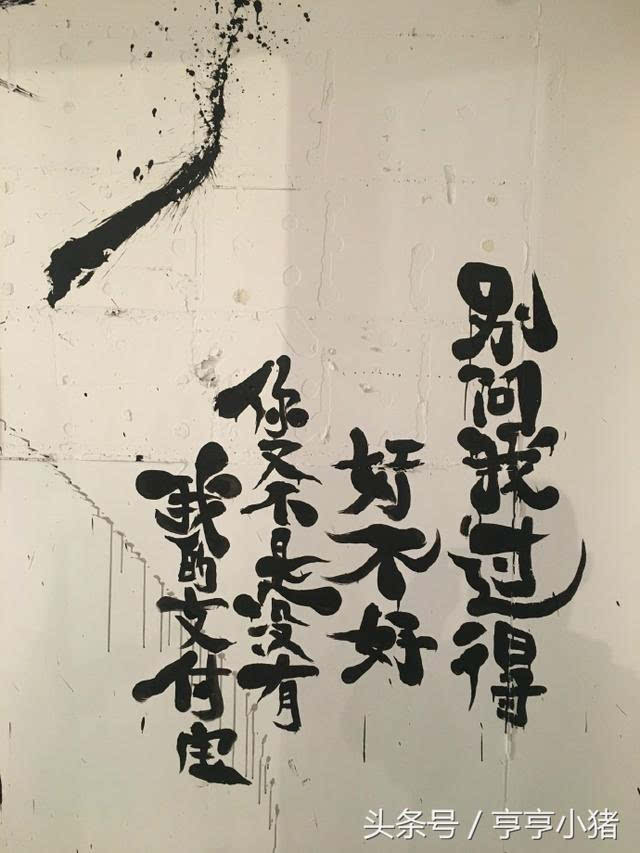 别问我过得
好不好
你又不是没有
我的支付宝
头条号 / 亨亨小猪